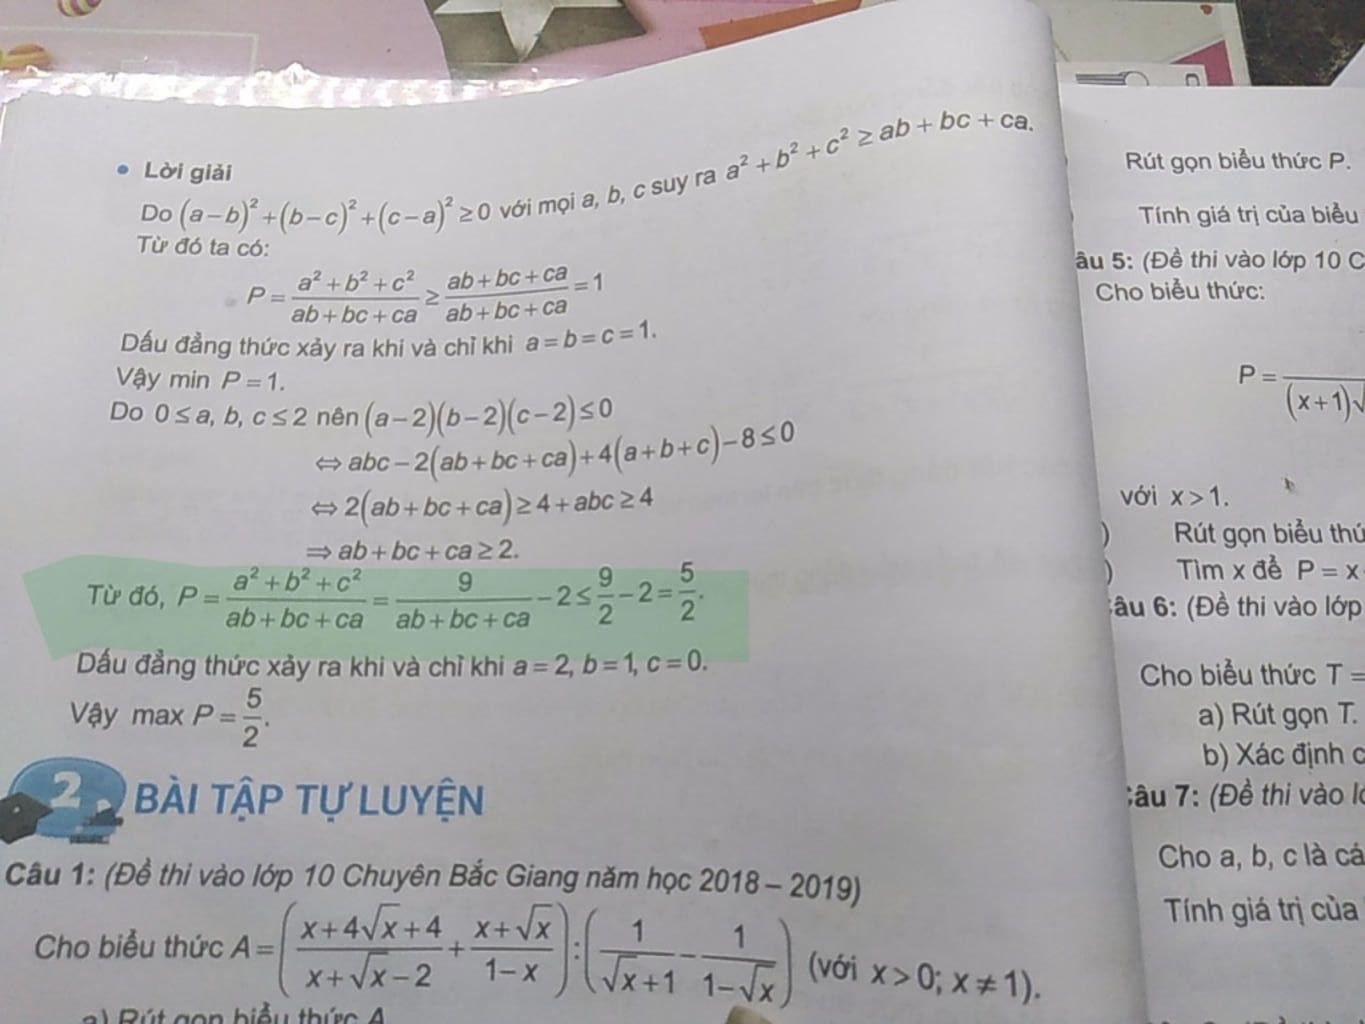 • Lời giải
Do (a−b)² + (b−c)² + (c−a)² ≥ 0 với mọi a, b, c suy ra a² + b² + c² ≥ ab + bc + ca.
Từ đó ta có:
P = (a² + b² + c²)/(ab + bc + ca) ≥ (ab + bc + ca)/(ab + bc + ca) = 1
Dấu đẳng thức xảy ra khi và chỉ khi a = b = c = 1.
Vậy min P = 1.
Do 0 ≤ a, b, c ≤ 2 nên (a−2)(b−2)(c−2) ≤ 0
⇔ abc − 2(ab + bc + ca) + 4(a + b + c) − 8 ≤ 0
⇔ 2(ab + bc + ca) ≥ 4 + abc ≥ 4
⇒ ab + bc + ca ≥ 2.
Từ đó, P = (a² + b² + c²)/(ab + bc + ca) = 9/(ab + bc + ca) − 2 ≤ 9/2 − 2 = 5/2.
Dấu đẳng thức xảy ra khi và chỉ khi a = 2, b = 1, c = 0.
Vậy max P = 5/2.
2 BÀI TẬP TỰ LUYỆN
Câu 1: (Đề thi vào lớp 10 Chuyên Bắc Giang năm học 2018 – 2019)
Cho biểu thức A = ((x + 4√x + 4)/(x + √x − 2) + (x + √x)/(1 − x)) : (1/(√x + 1) − 1/(1 − √x)) (với x > 0; x ≠ 1).
a) Rút gọn biểu thức A
Rút gọn biểu thức P.
Tính giá trị của biểu
âu 5: (Đề thi vào lớp 10 C
Cho biểu thức:
P =
(x+1)√
với x > 1.
) Rút gọn biểu thứ
) Tìm x để P = x
âu 6: (Đề thi vào lớp
Cho biểu thức T =
a) Rút gọn T.
b) Xác định c
âu 7: (Đề thi vào lớ
Cho a, b, c là cá
Tính giá trị của